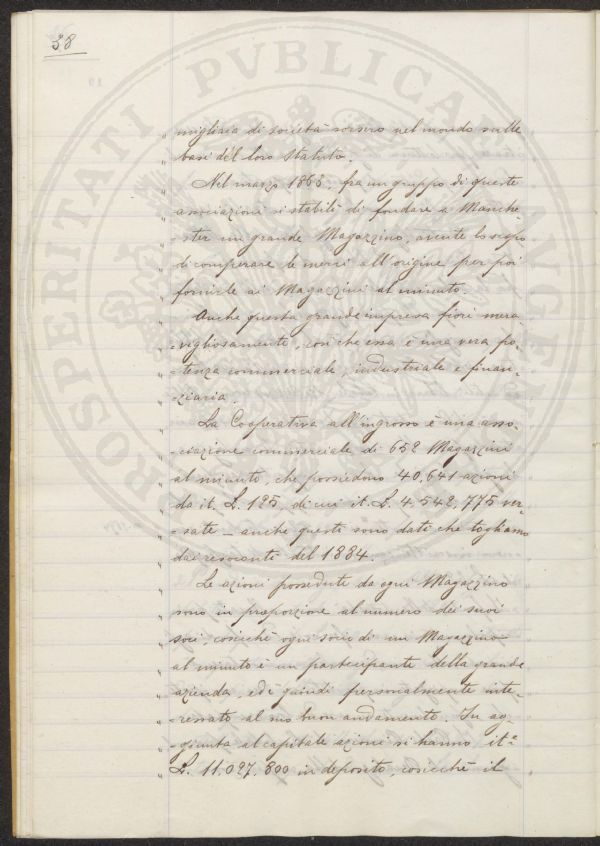 38
PROSPERITATI PVBLICAE AVGENDAE
„ migliaia di società sorsero nel mondo sulle
„ basi del loro Statuto.
„ Nel marzo 1863, fra un gruppo di queste
„ associazioni si stabilì di fondare a Manche-
„ -ster un grande Magazzino, avente lo scopo
„ di comperare le merci all'origine per poi
„ fornirle ai Magazzini al minuto.
„ Anche questa grande impresa fiorì mera-
„ -vigliosamente, così che essa è una vera po-
„ -tenza commerciale, industriale e finan-
„ -ziaria.
„ La Cooperativa all'ingrosso è una asso-
„ -ciazione commerciale di 652 Magazzini
„ al minuto, che possiedono 40.641 azioni
„ da it. L. 125, di cui it. L. 4.542.775 ver-
„ -sate – anche questi sono dati che togliamo
„ dai resoconti del 1884.
„ Le azioni possedute da ogni Magazzino
„ sono in proporzione al numero dei suoi
„ soci, cosicchè ogni socio di un Magazzino
„ al minuto è un partecipante della grande
„ azienda, ed è quindi personalmente inte-
„ -ressato al suo buon andamento. In ag-
„ -giunta al capitale azioni si hanno it.e
„ L. 11.027.800 in deposito, cosicchè il